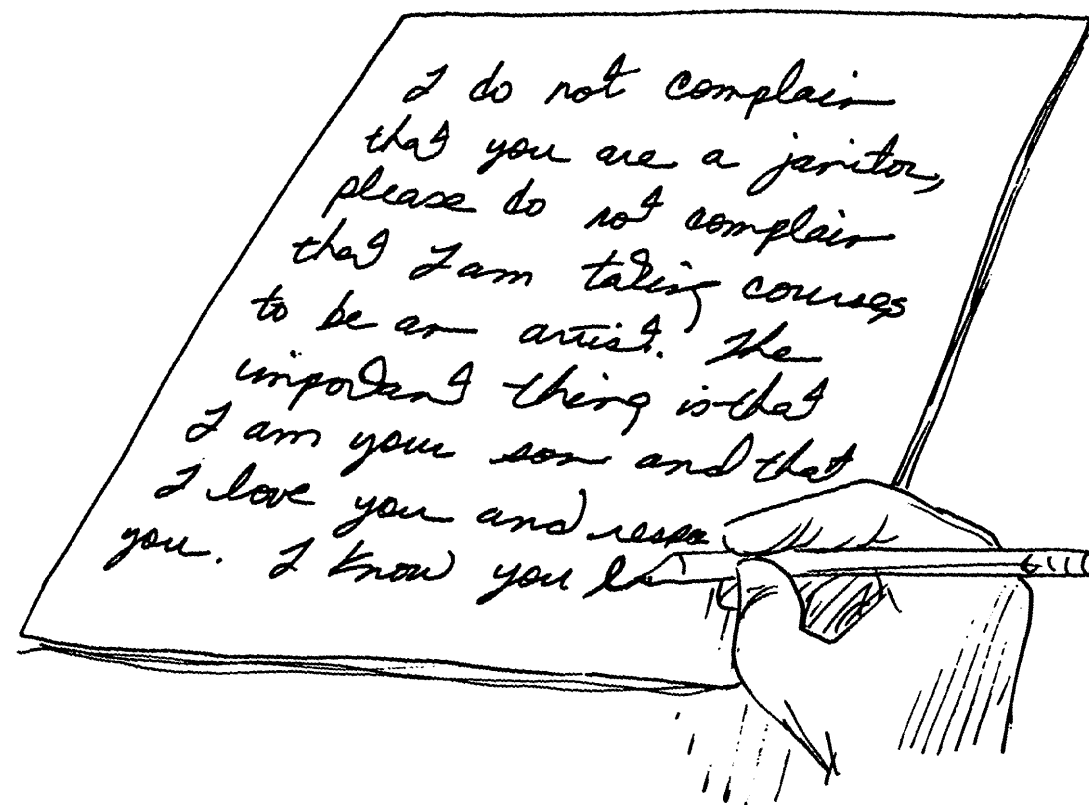 I do not complain
that you are a janitor,
please do not complain
that I am taking courses
to be an artist. The
important thing is that
I am your son and that
I love you and respe
you. I know you l